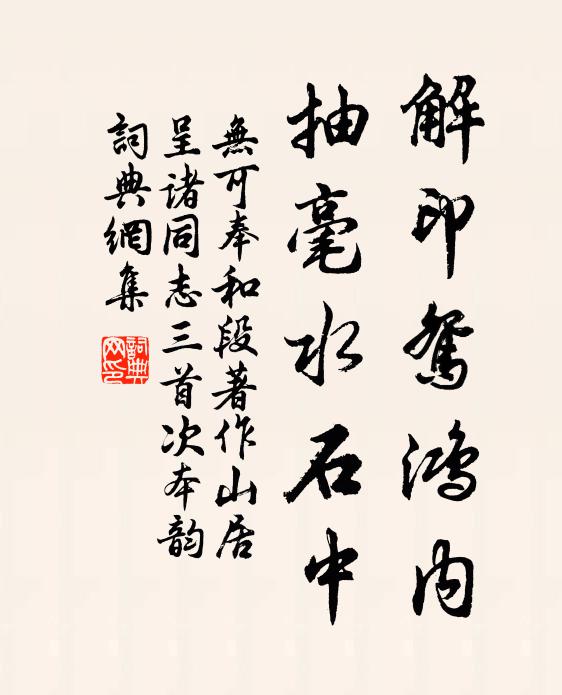 解印鴛鴻内
抽毫水石中
無可奉和段著作山居
呈诸同志三首次本韵
詞典網集
詞典网印